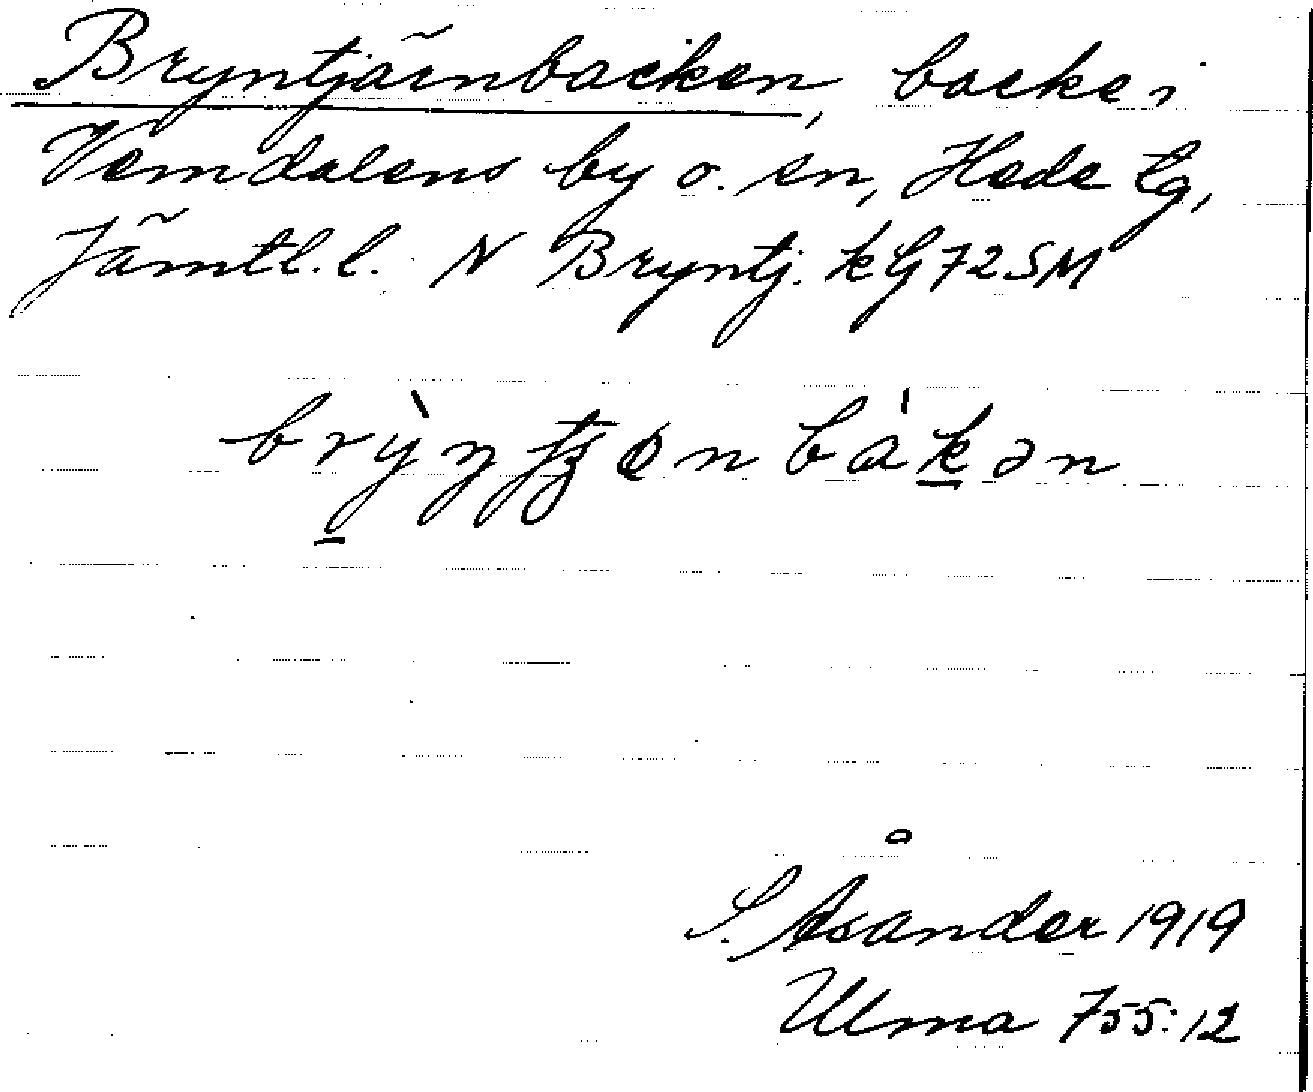 Bryntjärnbacken, backe i
Vemdalens by o. sn, Hede tg,
Jämtl. l. N Bryntj. kG72SM
bakən
S. Åsander 1919
Ulma 755:12